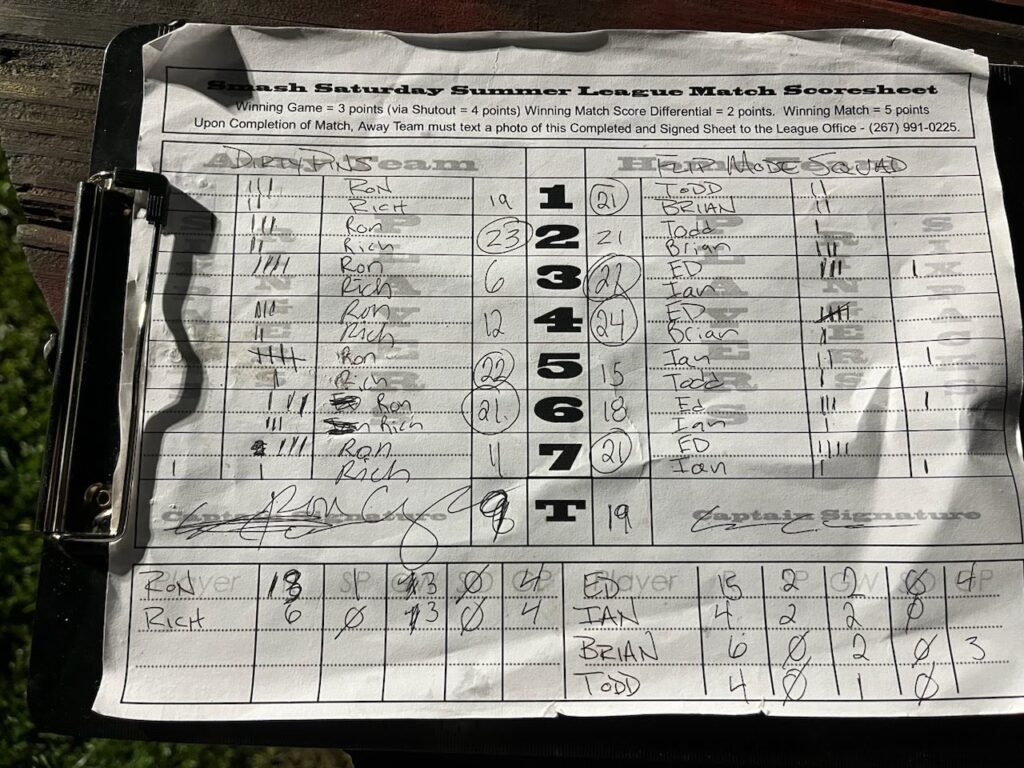 Smash Saturday Summer League Match Scoresheet
Winning Game = 3 points (via Shutout = 4 points) Winning Match Score Differential = 2 points. Winning Match = 5 points
Upon Completion of Match, Away Team must text a photo of this Completed and Signed Sheet to the League Office - (267) 991-0225.
DIRTY PINS Team FLIP MODE SQUAD
RON 19 1 21 TODD
RICH BRIAN
Ron 23 2 21 Todd
Rich Brian
Ron 6 3 21 ED
Rich Ian
Ron 12 4 24 ED
Rich Brian
Ron 22 5 15 Ian
Rich Todd
Ron 21 6 18 Ed
Rich Ian
Ron 11 7 21 ED
Rich Ian
Captain Signature T 19 Captain Signature
RON Player SP 1 3 SO Ø GP 4 ED Player P 15 SP 2 GW 2 SO Ø GP 4
RICH 6 Ø 3 Ø 4 IAN 4 2 2 Ø
BRIAN 6 Ø 2 Ø 3
TODD 4 Ø 1 Ø